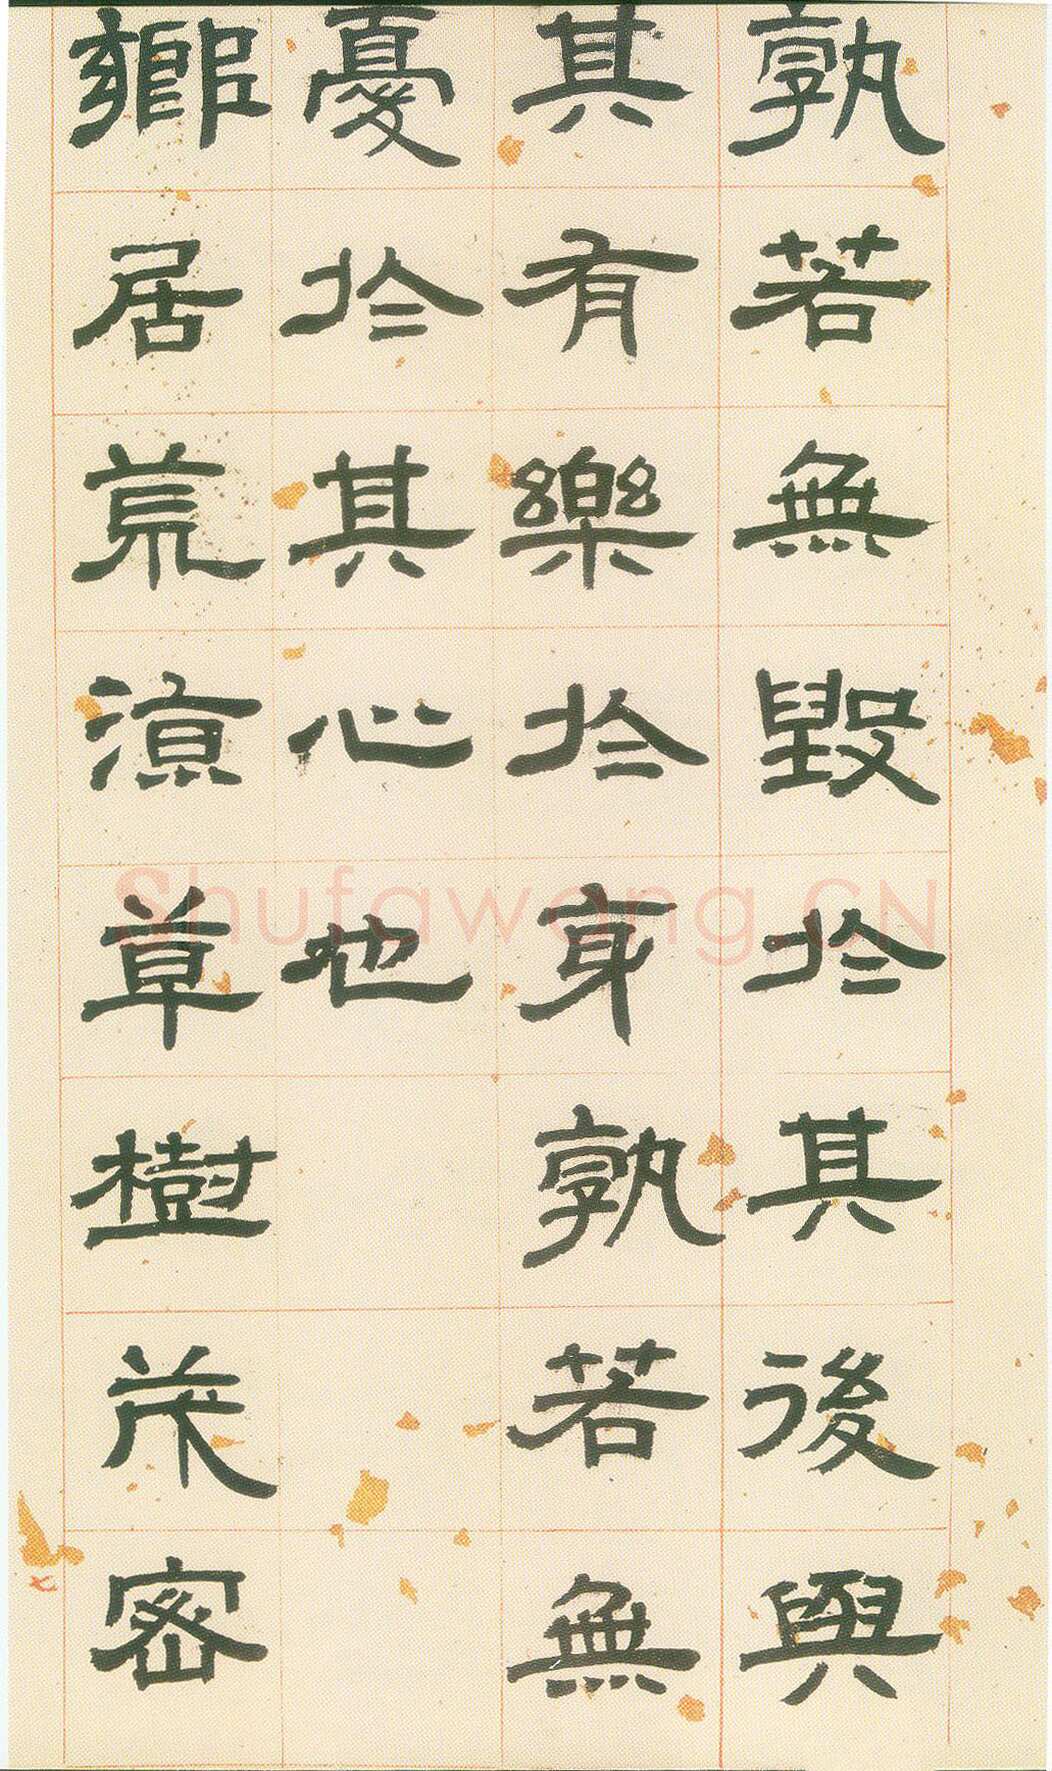 孰若無毀於其後與
其有樂於身孰若無
憂於其心也
鄉居荒涼草樹茂密
Shufawang.CN